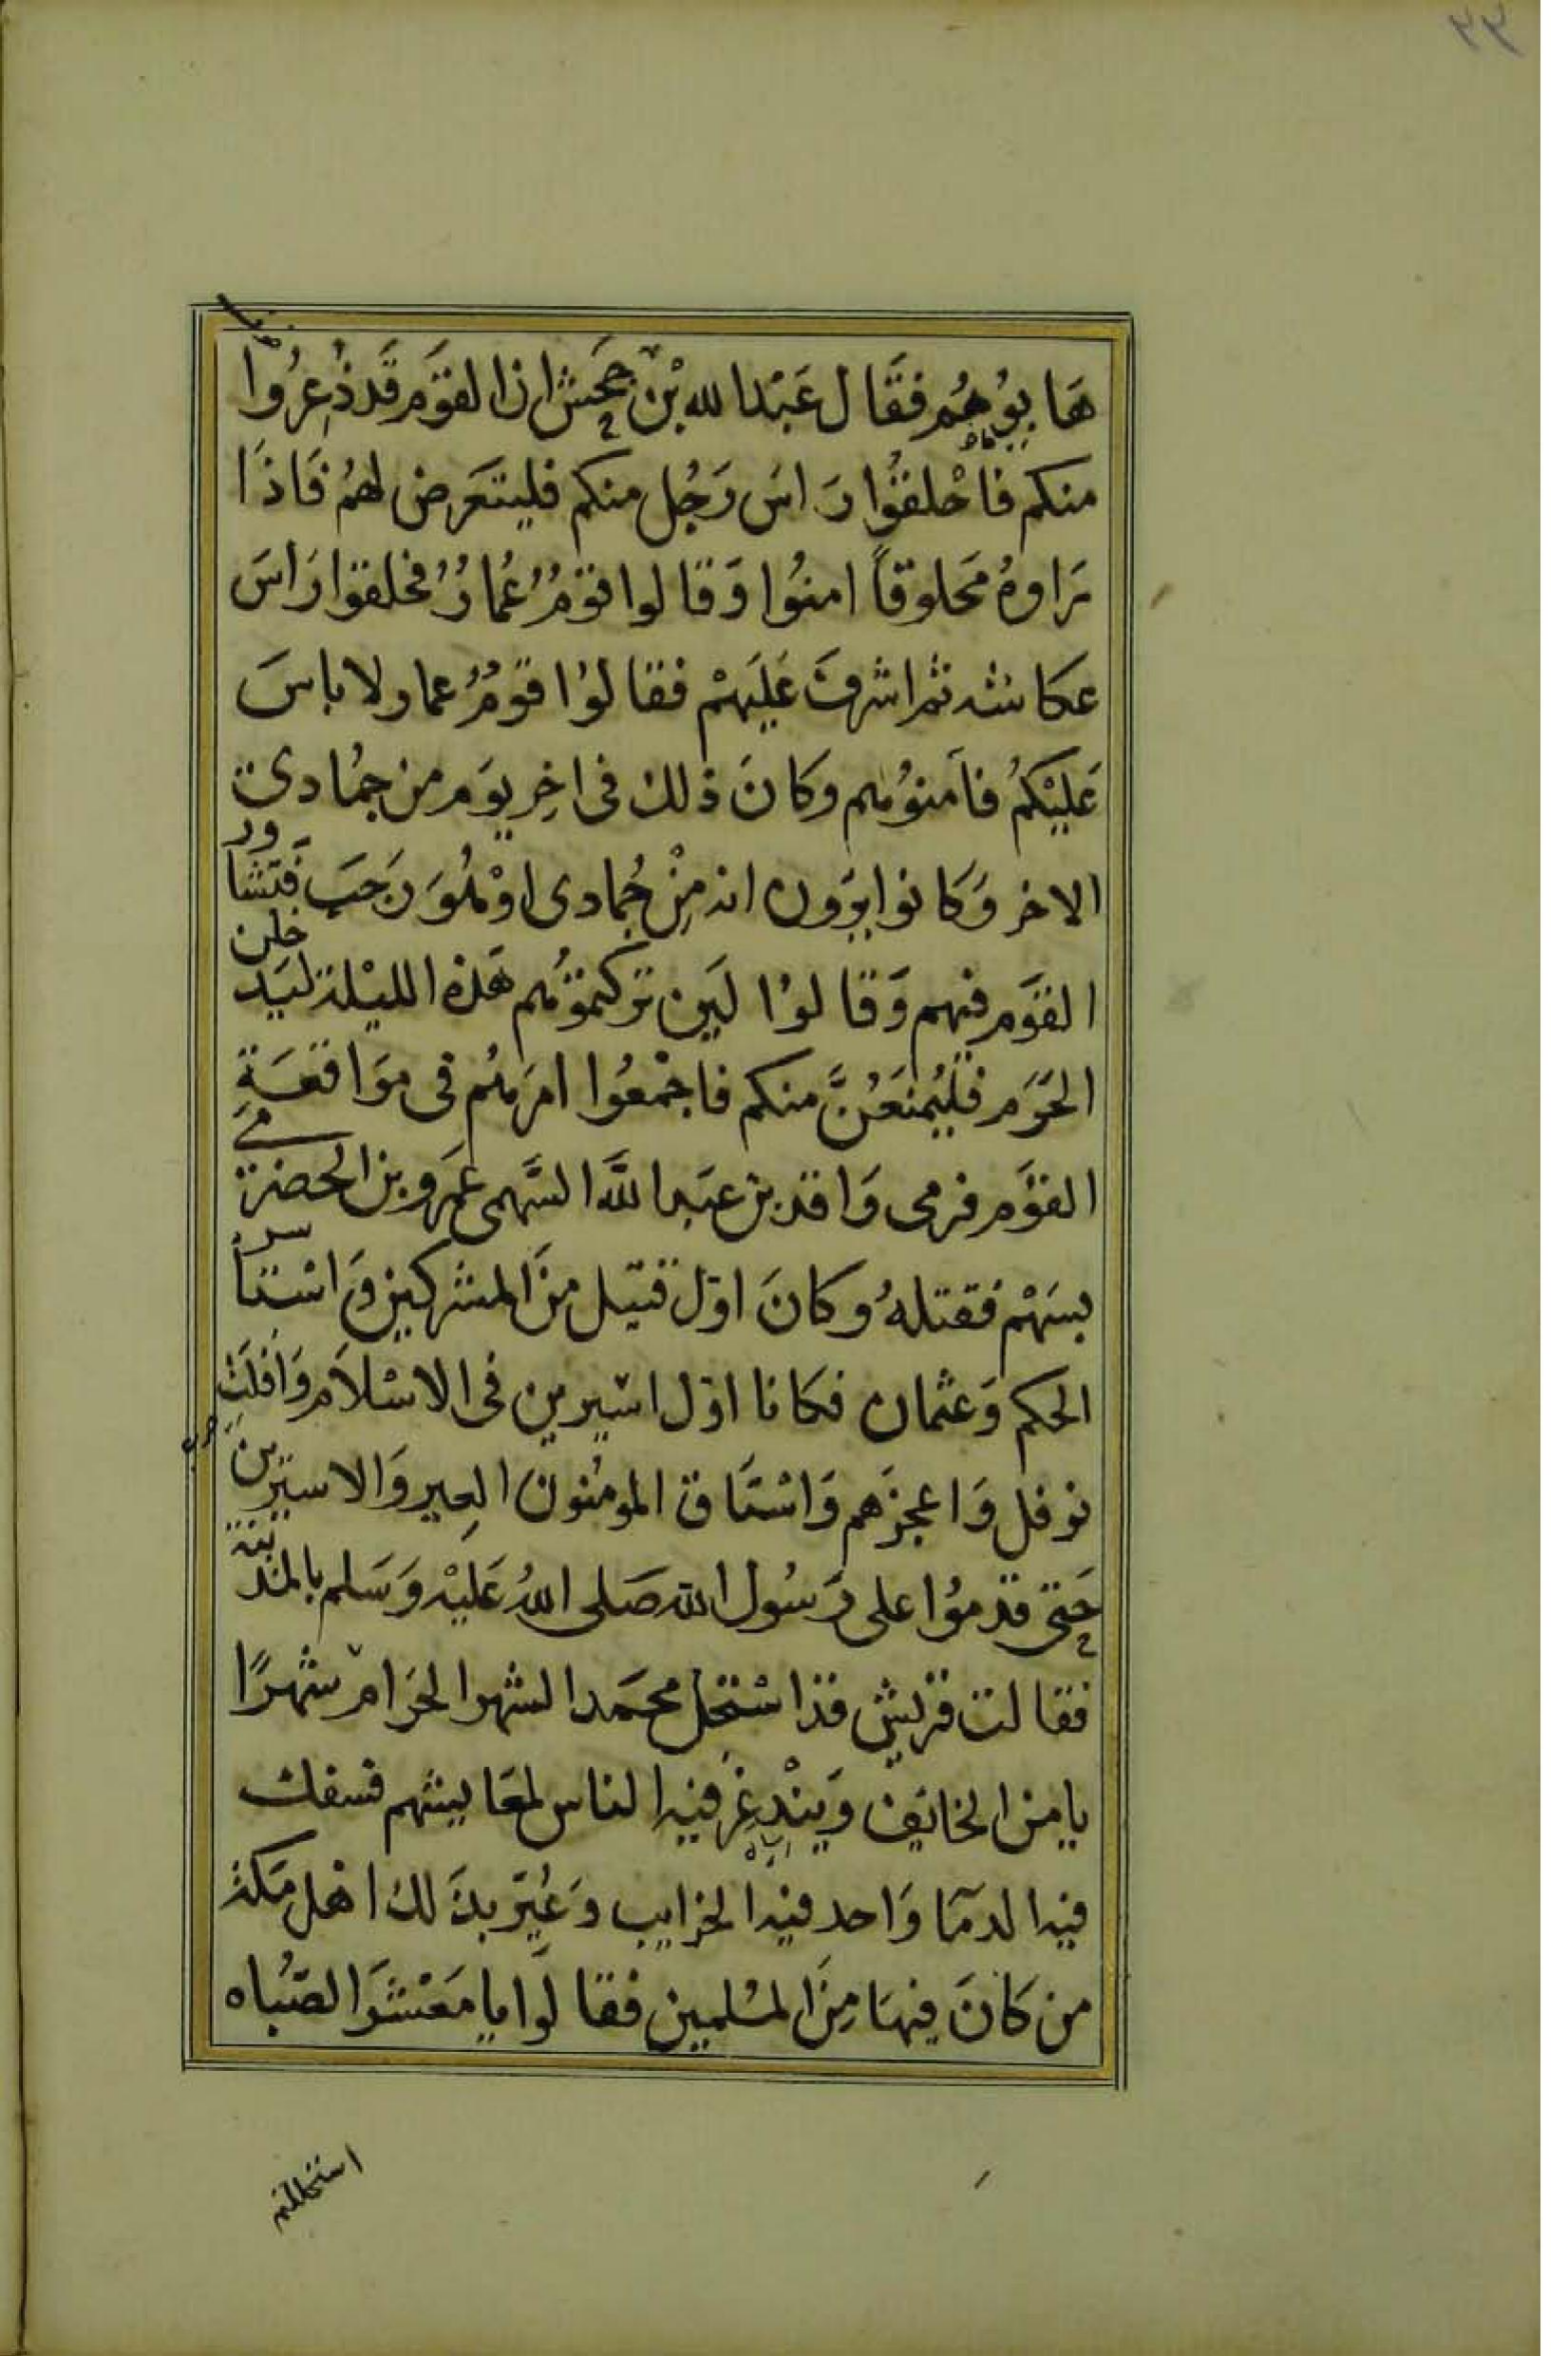 هَابُوهُم فقَال عَبْدالله بْن جَحش ان القوَم قَد ذُعرُوا
منكم فاحْلقُوا رَاسَ رَجُل منكم فليتعَرض لهُم فَاذَا
رَاوهُ مَحلوقاً امنُوا وَقالوا قومٌ عُمارٌ فحلقوا رَاسَ
عكاشه ثم اشرفَ عَليَهمْ فقالوُا قومٌ عمار لا باسَ
عَليْكمُ فاَمنوُهم وكانَ ذلك فى اخِر يوَم من جمُادى
الاخر وَكانوا يرَون انه مِنْ جُمادى اوْ هُوَ رَجَب فَتشَاور
القوَم فيهم وَقالوُا لَين تركتموُهم هَذه الليْلة ليَدخلن
الحَرَم فَليُمنَعُنَّ منكم فاجْمعُوا امرَهُم فى موَاقعَةِ
القوَم فرمى وَاقد بن عبَد اللَّه السَّهمى عَمرو بن الحضرمي
بسَهْم فقتلهُ وكانَ اول قتيل منَ المشركين وَاسْتاسر
الحكم وَعثمان فكانا اول اسيرين فى الاسْلاَم وَافلَتَ
نوفل وَاعجزَهم وَاسْتَاق المومُنونَ العِير وَالاسيرين
حَتى قدموُا على رَسُول الله صَلى اللهُ عَليْه وَسَلم بالمدينة
فقالت قريش قد اسْتحل محمَد الشهر الحرَام شهرًا
يامن الخايف وَيَنْدغِر فيه الناس لمعَايشهم فسفك
فيه الدمَا وَاحد فيه الحرايب وَعُيّر بذَلك اهْل مَكة
من كَانَ فيهَا مِنَ المسُلمين فقالوا يا مَعْشَر الصّبُاه
استحللتم